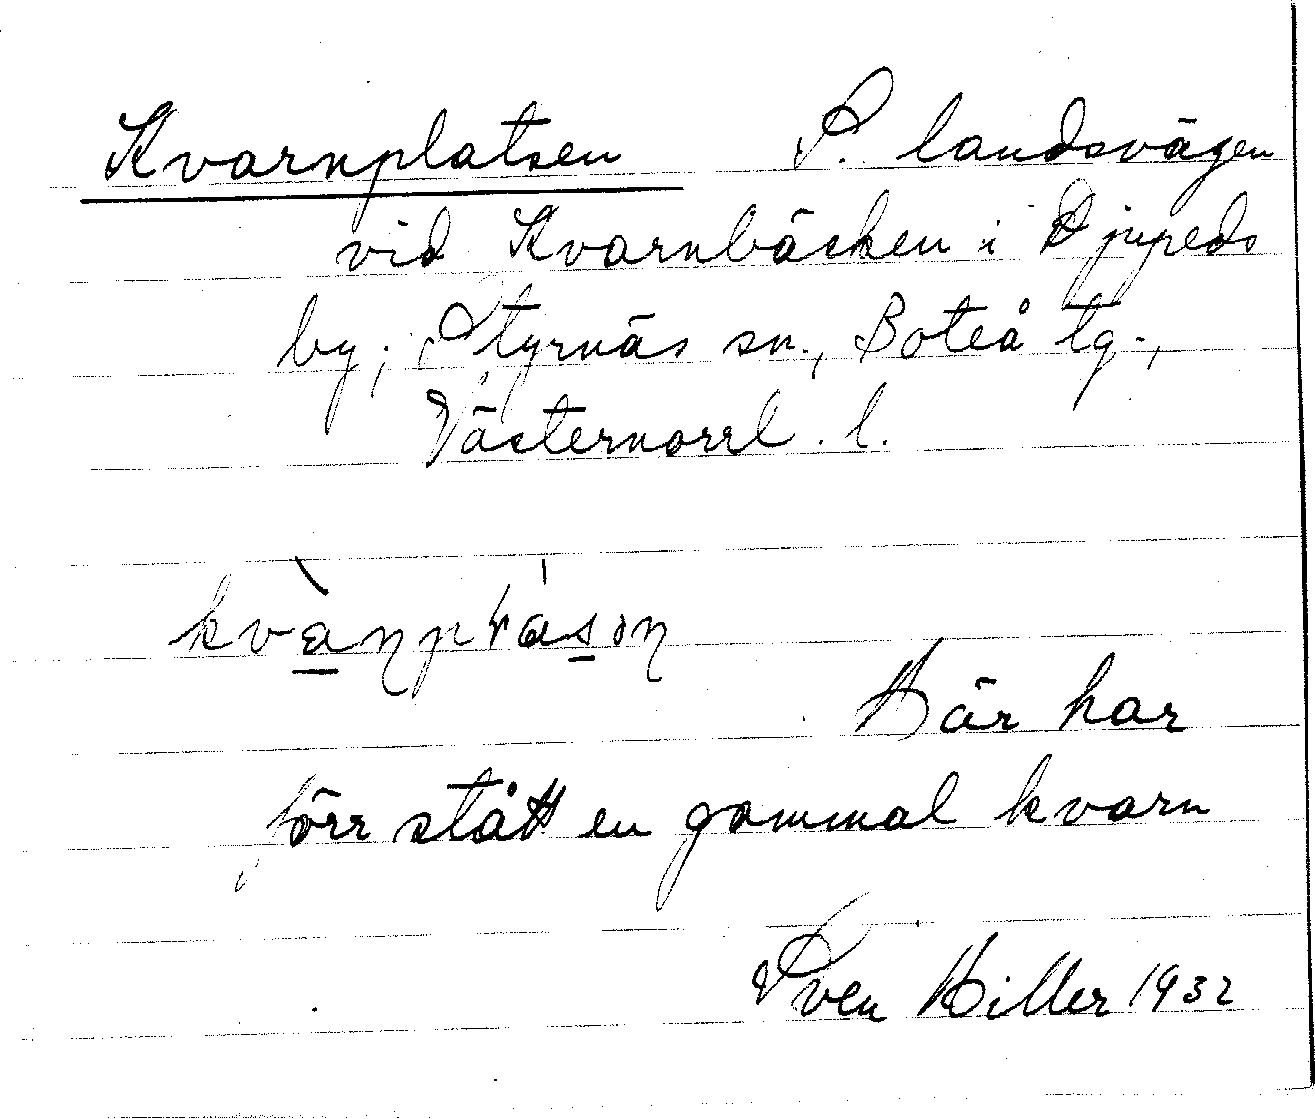 Kvarnplatsen S. landsvägen
vid Kvarnbäcken i Djupeds
by, Styrnäs sn., Boteå tg.,
Västernorrl. l.
Här har
förr stått en gammal kvarn
Sven Hiller 1932